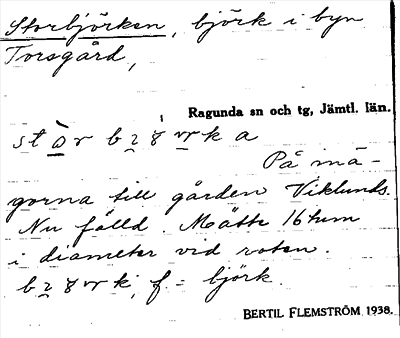 Storbjörken, björk i byn
Torsgård,
Ragunda sn och tg, Jämtl. län.
På mä-
gorna till gården Viklunds.
Nu fälld. Mätte 16 tum
i diameter vid roten.
f. = björk.
BERTIL FLEMSTRÖM 1938.